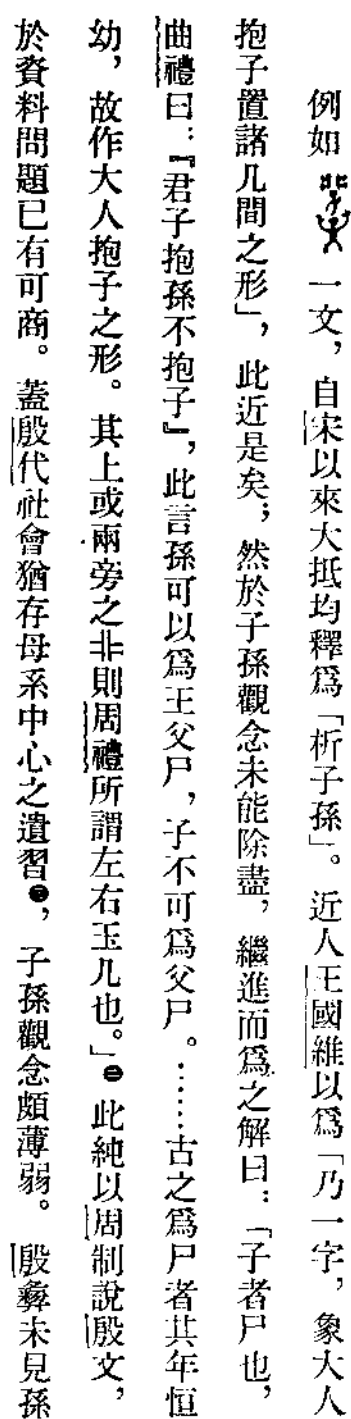 例如一文，自宋以來大抵均釋爲「析子孫」。近人王國維以爲「乃一字，象大人
抱子置諸几間之形」，此近是矣；然於子孫觀念未能除盡，繼進而爲之解曰：「子者尸也，
曲禮曰：『君子抱孫不抱子』，此言孫可以爲王父尸，子不可爲父尸。……古之爲尸者其年恒
幼，故作大人抱子之形。其上或兩旁之非則周禮所謂左右玉几也。」㊁此純以周制說殷文，
於資料問題已有可商。蓋殷代社會猶存母系中心之遺習㊂，子孫觀念頗薄弱。殷彝未見孫